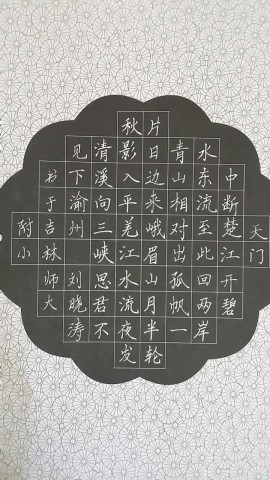 天门
中断楚江开碧
水东流至此回两岸
青山相对出孤帆一
片日边来峨眉山月半轮
秋影入平羌江水流夜发
清溪向三峡思君不
见下渝州 刘晓涛
书于吉林师大
附小